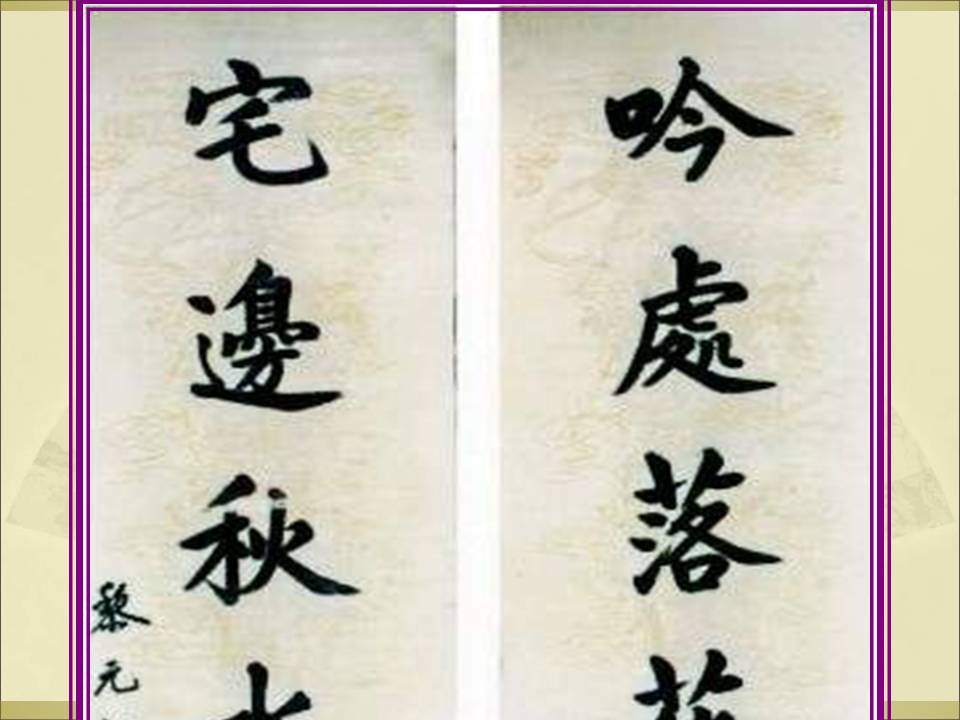 吟處落花
宅邊秋水
黎元